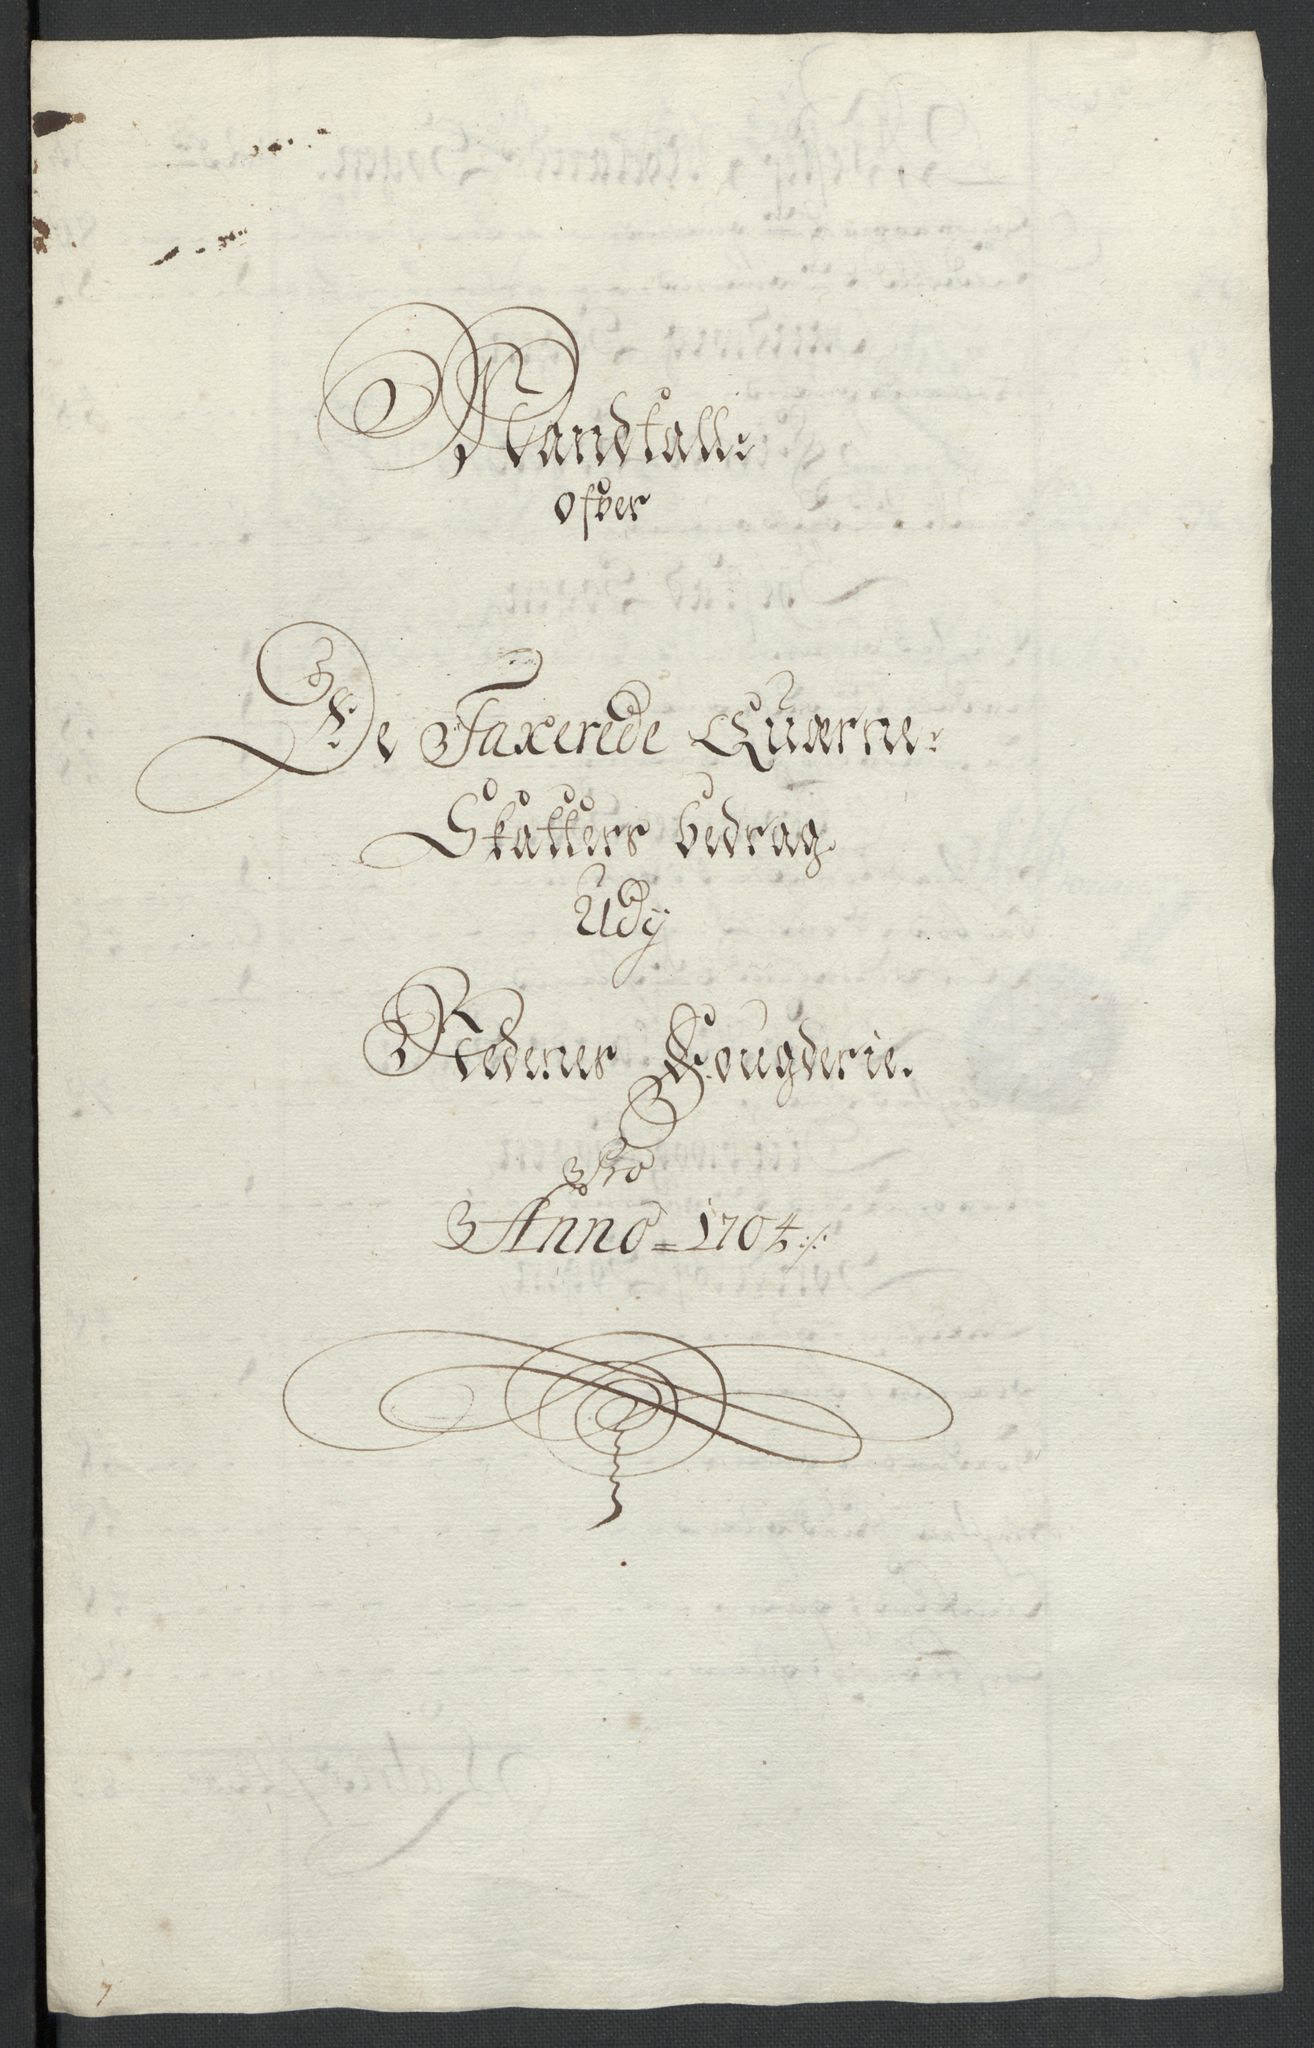 Mandtall:
ofver
De Taxerede Quærne:
Skatters bedrag
Udy
Nedenes Fougderie.
Pro
Anno = 1704 ./.
7